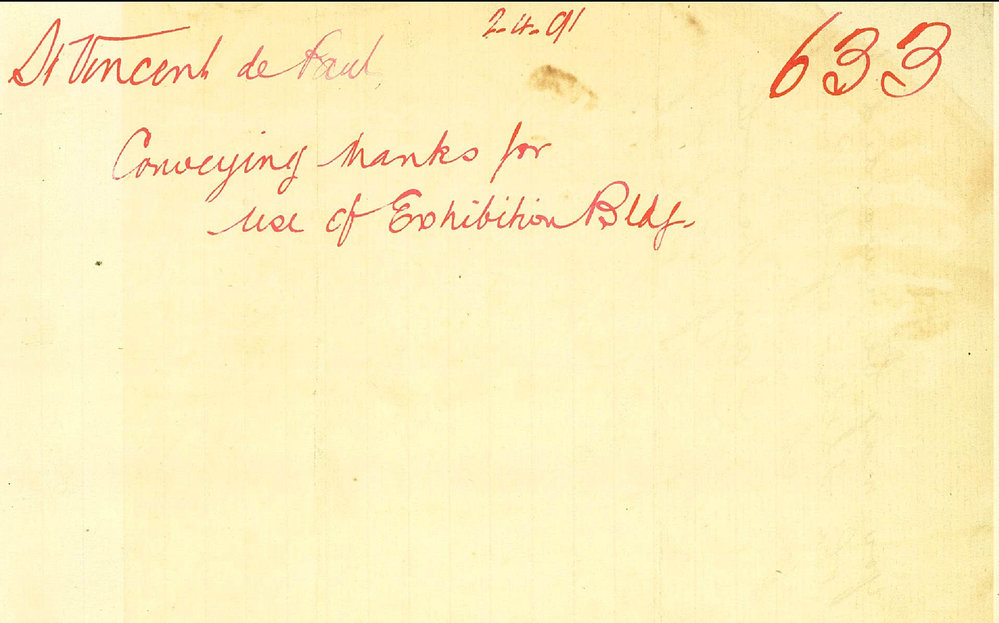 St Vincent de Paul
2-4-91
633
Conveying thanks for
use of Exhibition Bldg.